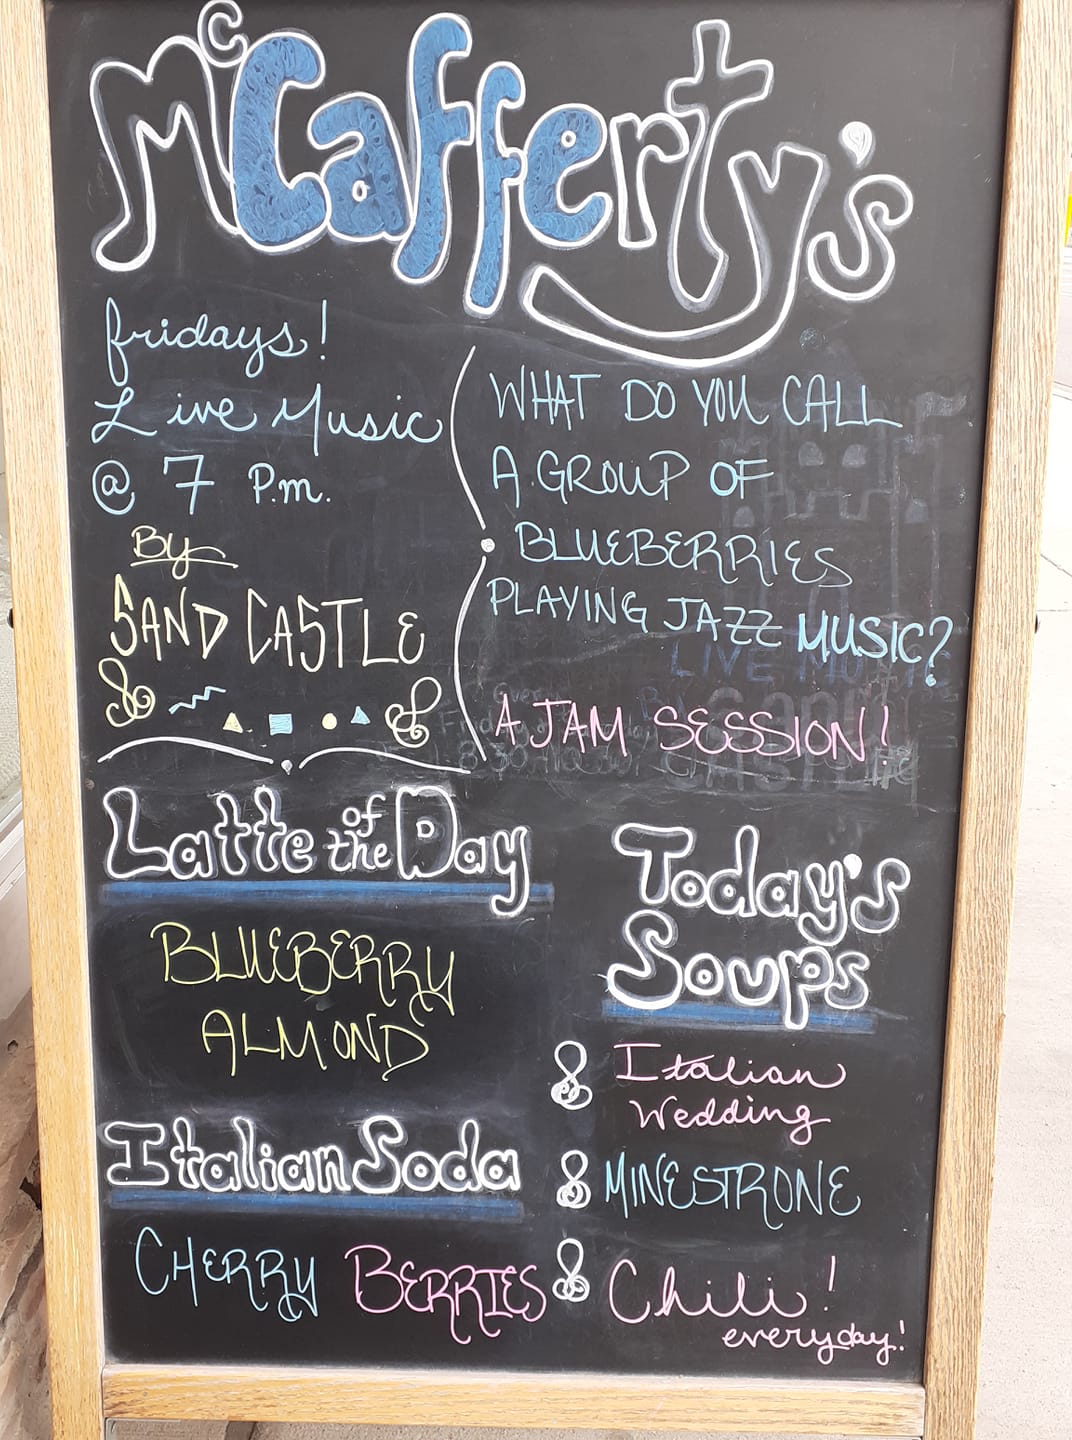 McCafferty's
fridays!
Live Music
@ 7 P.m.
By
SAND CASTLE
WHAT DO YOU CALL
A GROUP OF
BLUEBERRIES
PLAYING JAZZ MUSIC?
A JAM SESSION!
LIVE MUSIC
Latte of the Day
BLUEBERRY
ALMOND
Italian Soda
CHERRY BERRIES
Today's
Soups
Italian
Wedding
MINESTRONE
Chili!
everyday!